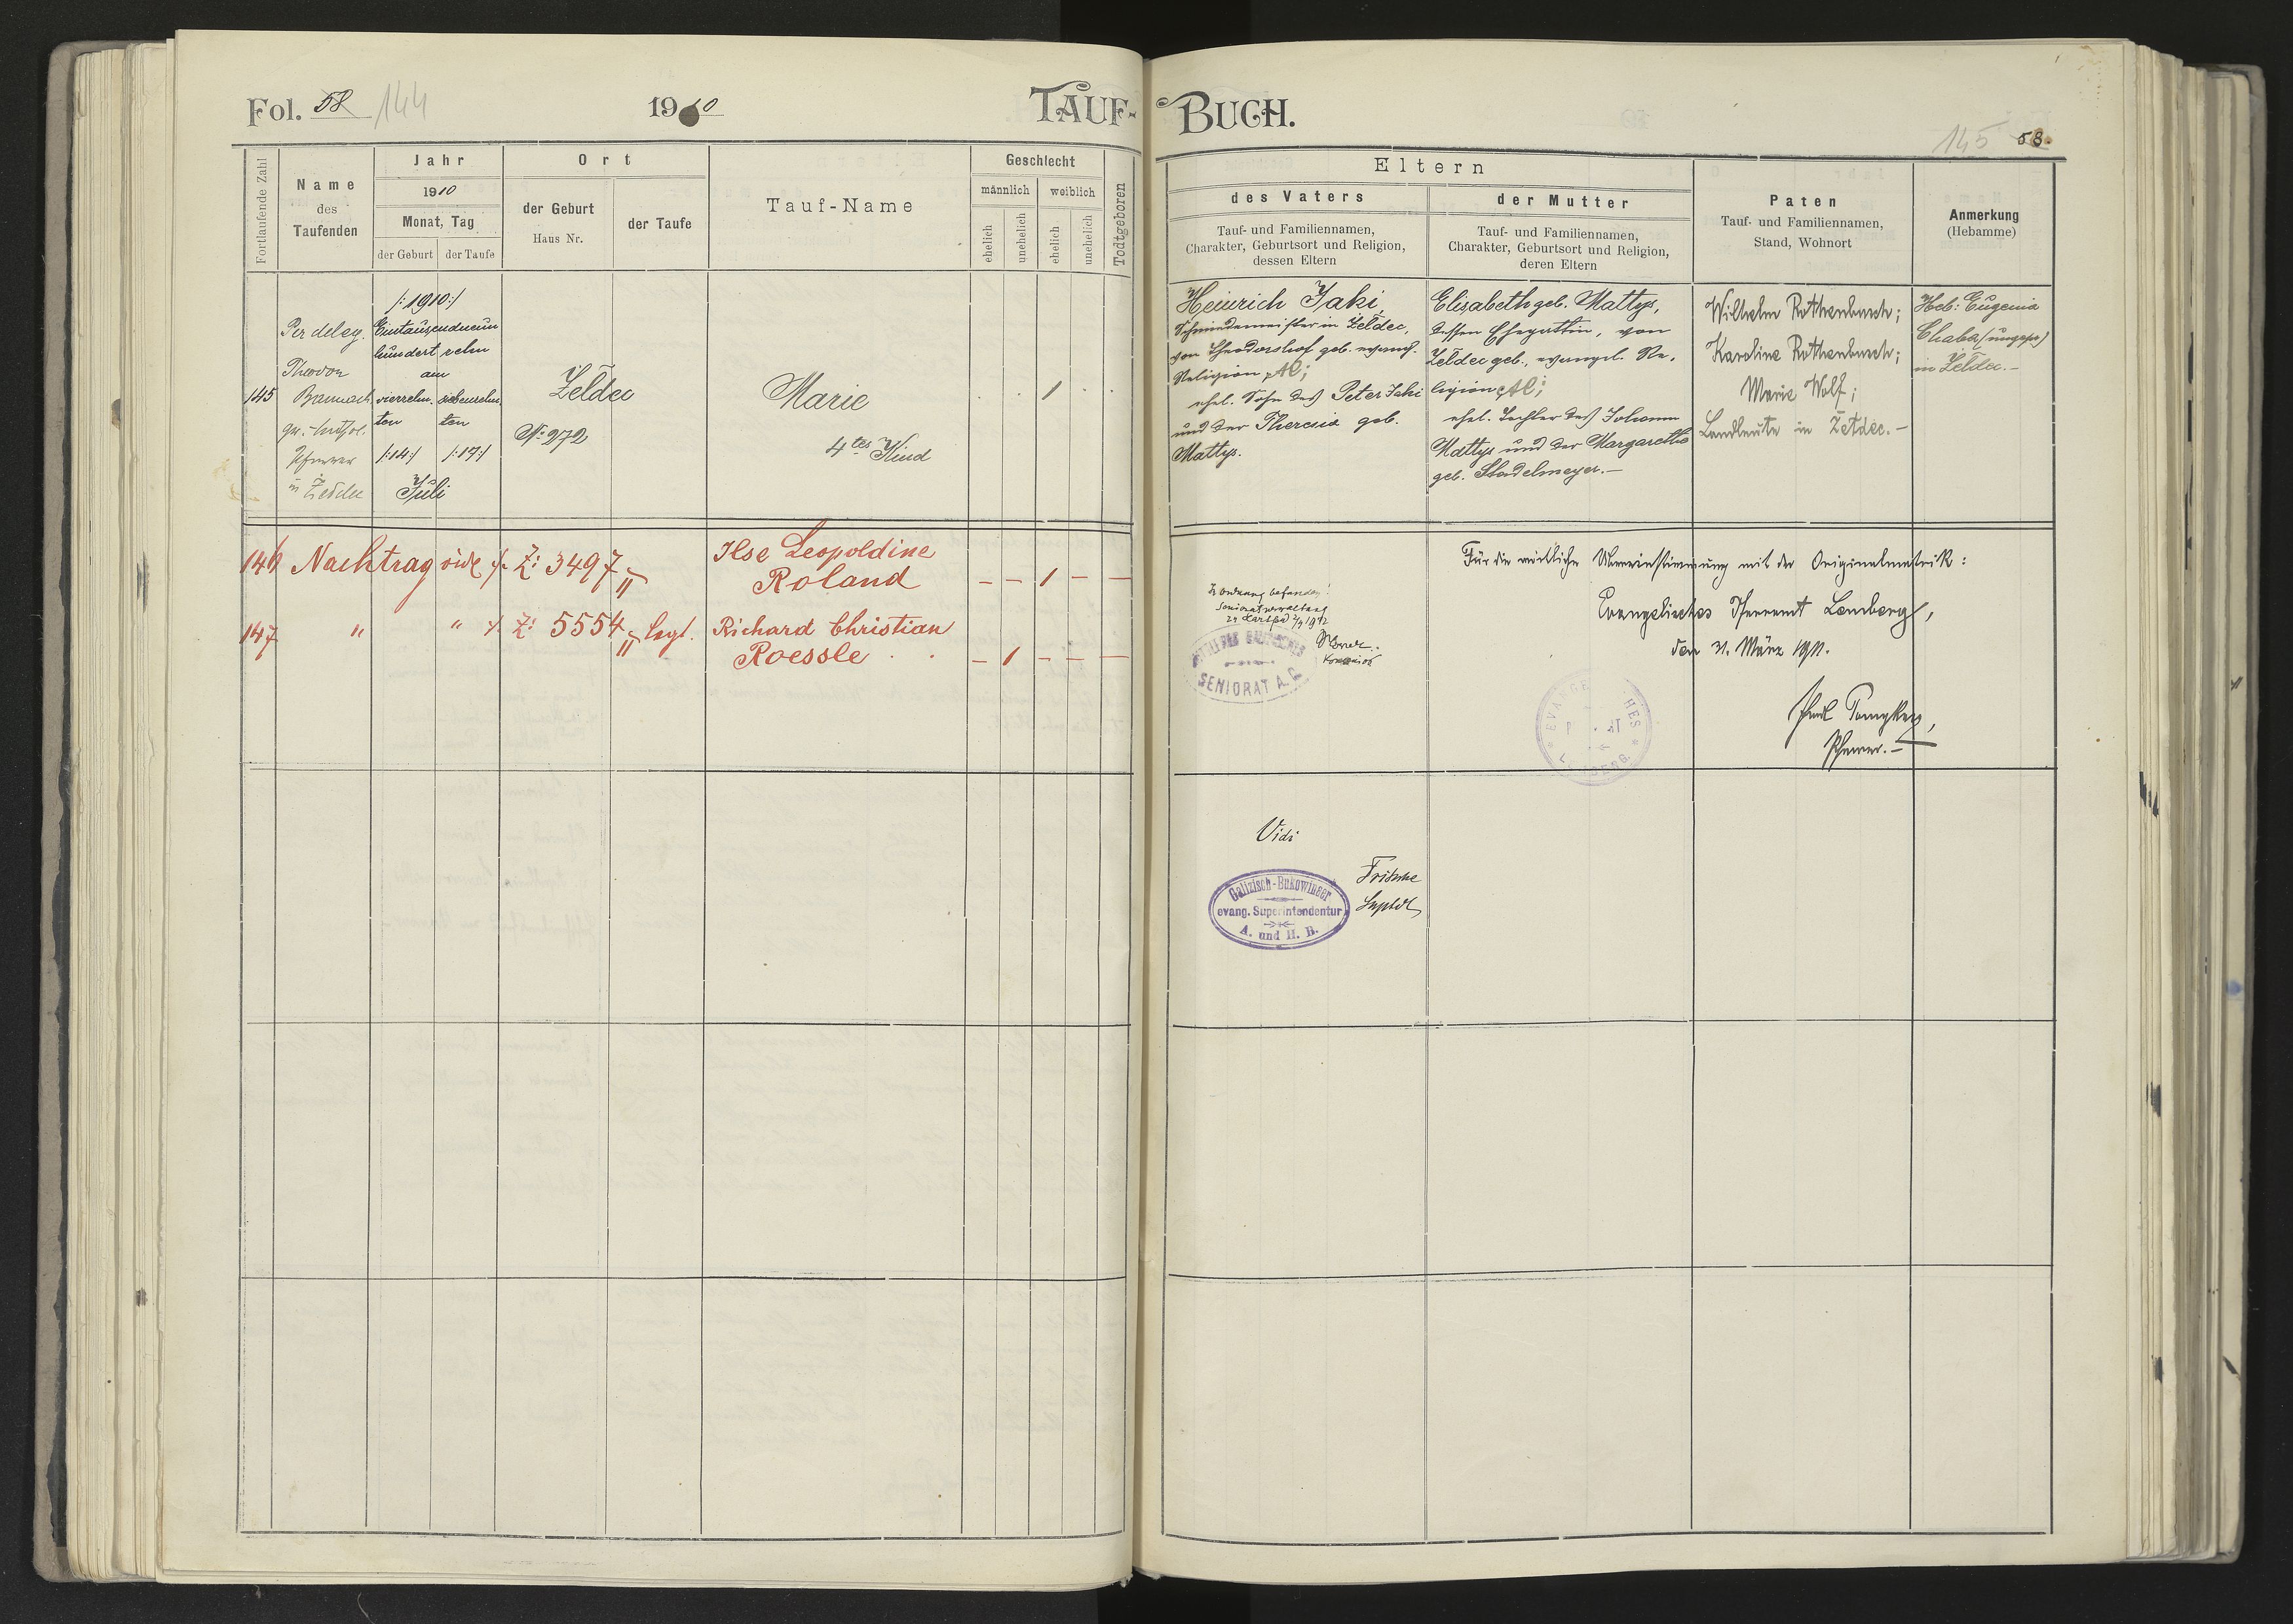 Fol. 58 144
1910
TAUF-
BUCH.
145 58.
Fortlaufende Zahl
Name
des
Taufenden
Jahr
1910
Monat, Tag
der Geburt
der Taufe
Ort
der Geburt
Haus Nr.
der Taufe
Tauf-Name
Geschlecht
männlich
weiblich
ehelich
unehelich
ehelich
unehelich
Todtgeboren
Eltern
des Vaters
Tauf- und Familiennamen,
Charakter, Geburtsort und Religion,
dessen Eltern
der Mutter
Tauf- und Familiennamen,
Charakter, Geburtsort und Religion,
deren Eltern
Paten
Tauf- und Familiennamen,
Stand, Wohnort
Anmerkung
(Hebamme)
145
Per deleg.
Theodor
Bannach
Pfarrer
in Żeldec
/:1910:/
Eintausendneun
hundert zehn
am
vierzehn- siebenzehn-
ten ten
/:14:/ /:17:/
Juli
Żeldec
No 272
Marie
4tes Kind
1
Heinrich Jaki,
Schmiedemeister in Żeldec,
von Theodorshof geb. evang.
Religion AC;
ehel. Sohn des Peter Jaki
und der Theresia geb.
Mattys.
Elisabeth geb. Mattys,
dessen Ehegattin, von
Żeldec geb., evangel. Re-
ligion AC;
ehel. Tochter des Johann
Mattys und der Margarethe
geb. Stadelmeyer.—
Wilhelm Rothenbusch;
Karoline Rothenbusch;
Marie Wolf;
Landleute in Żeldec.—
Heb: Eugenia
Chaba (ungepr)
in Żeldec.—
146 Nachtrag vide ./. Z: 3497
Ilse Leopoldine
Roland
— — 1 — —
147 " " ./. Z: 5554 legt.
Richard Christian
Roessle
— 1 — — —
In Ordnung befunden!
Senioratsverwaltung
SENIORAT A. C.
Für die wörtliche Übereinstimmung mit der Originalmatrik:
Evangelisches Pfarramt Lemberg,
den 31. März 1911.
Pfarrer.—
Vidi
Galizisch-Bukowinaer
evang. Superintendentur
A. und H. B.
Fritsche
Suptdt